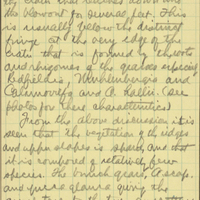 the blowout for several feet. This
is usually below the distinct
fringe at the very edge of the
that is formed by the roots
and rhizomes of the grasses especially
Redfieldia, Muhlenbergia and
Calamovilfa and A. hallii. (See
photos for these characteristics)
From the above discussion it is
seen that the vegetation of the edges
and upper slopes is sparse, and that
it is composed of relatively few
species. The bunch grass, A. scop.
and yucca glauca giving the